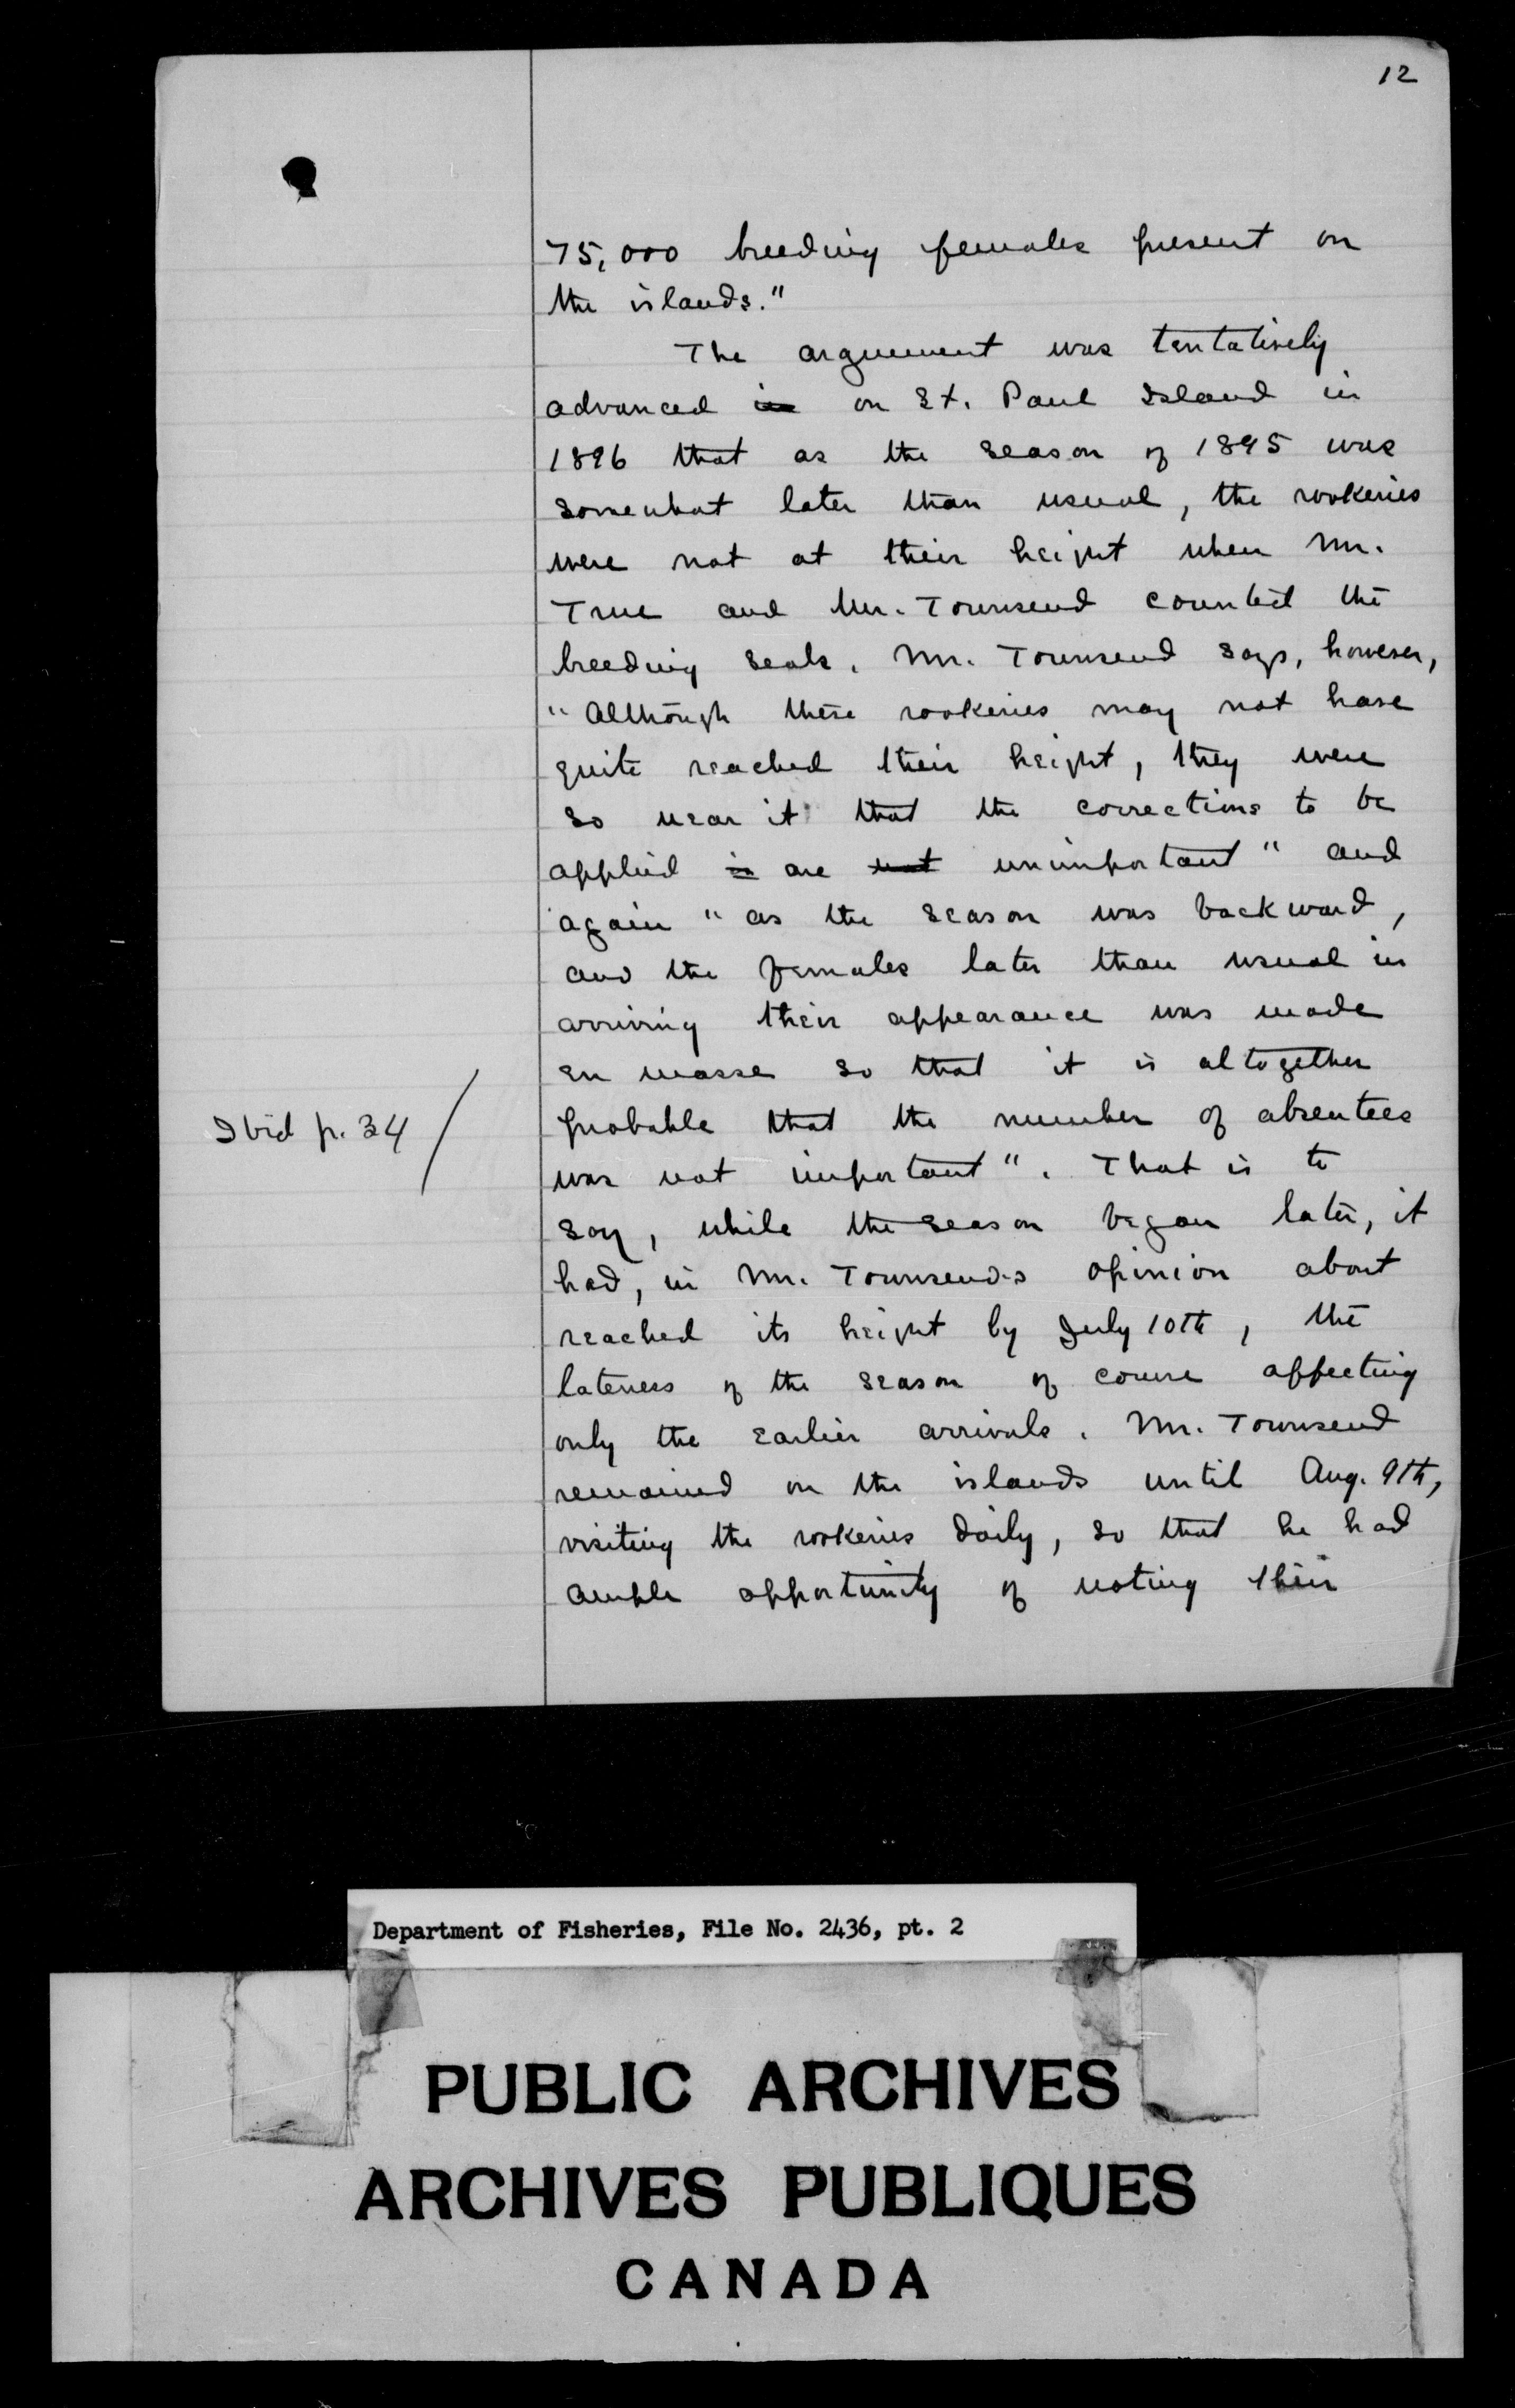 12
75,000 breeding females present on
the islands."
The arguement was tentatively
advanced in on St. Paul Island in
1896 that as the season of 1895 was
somewhat later than usual, the rookeries
were not at their height when Mr.
True and Mr. Townsend counted the
breeding seals. Mr. Townsend says, however,
"Although these rookeries may not have
quite reached their height, they were
so near it that the corrections to be
applied is are not unimportant" and
again "as the season was backward,
and the females later than usual in
arriving their appearance was made
en masse so that it is altogether
Ibid p. 34 /
probable that the number of absentees
was not important". That is to
say, while the season began later, it
had, in Mr. Townsend's opinion about
reached its height by July 10th, the
lateness of the season of course affecting
only the earlier arrivals. Mr. Townsend
remained on the islands until Aug. 9th,
visiting the rookeries daily, so that he had
ample opportunity of noting their
Department of Fisheries, File No. 2436, pt. 2
PUBLIC ARCHIVES
ARCHIVES PUBLIQUES
CANADA